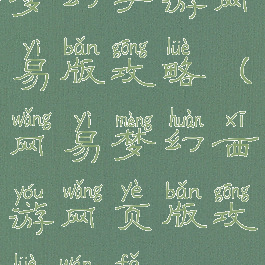 yì bǎn gōng lüè
易 版 攻 略 (
wǎng yì mèng huàn xī
网 易 梦 幻 西
yóu wǎng yè bǎn gōng
游 网 页 版 攻